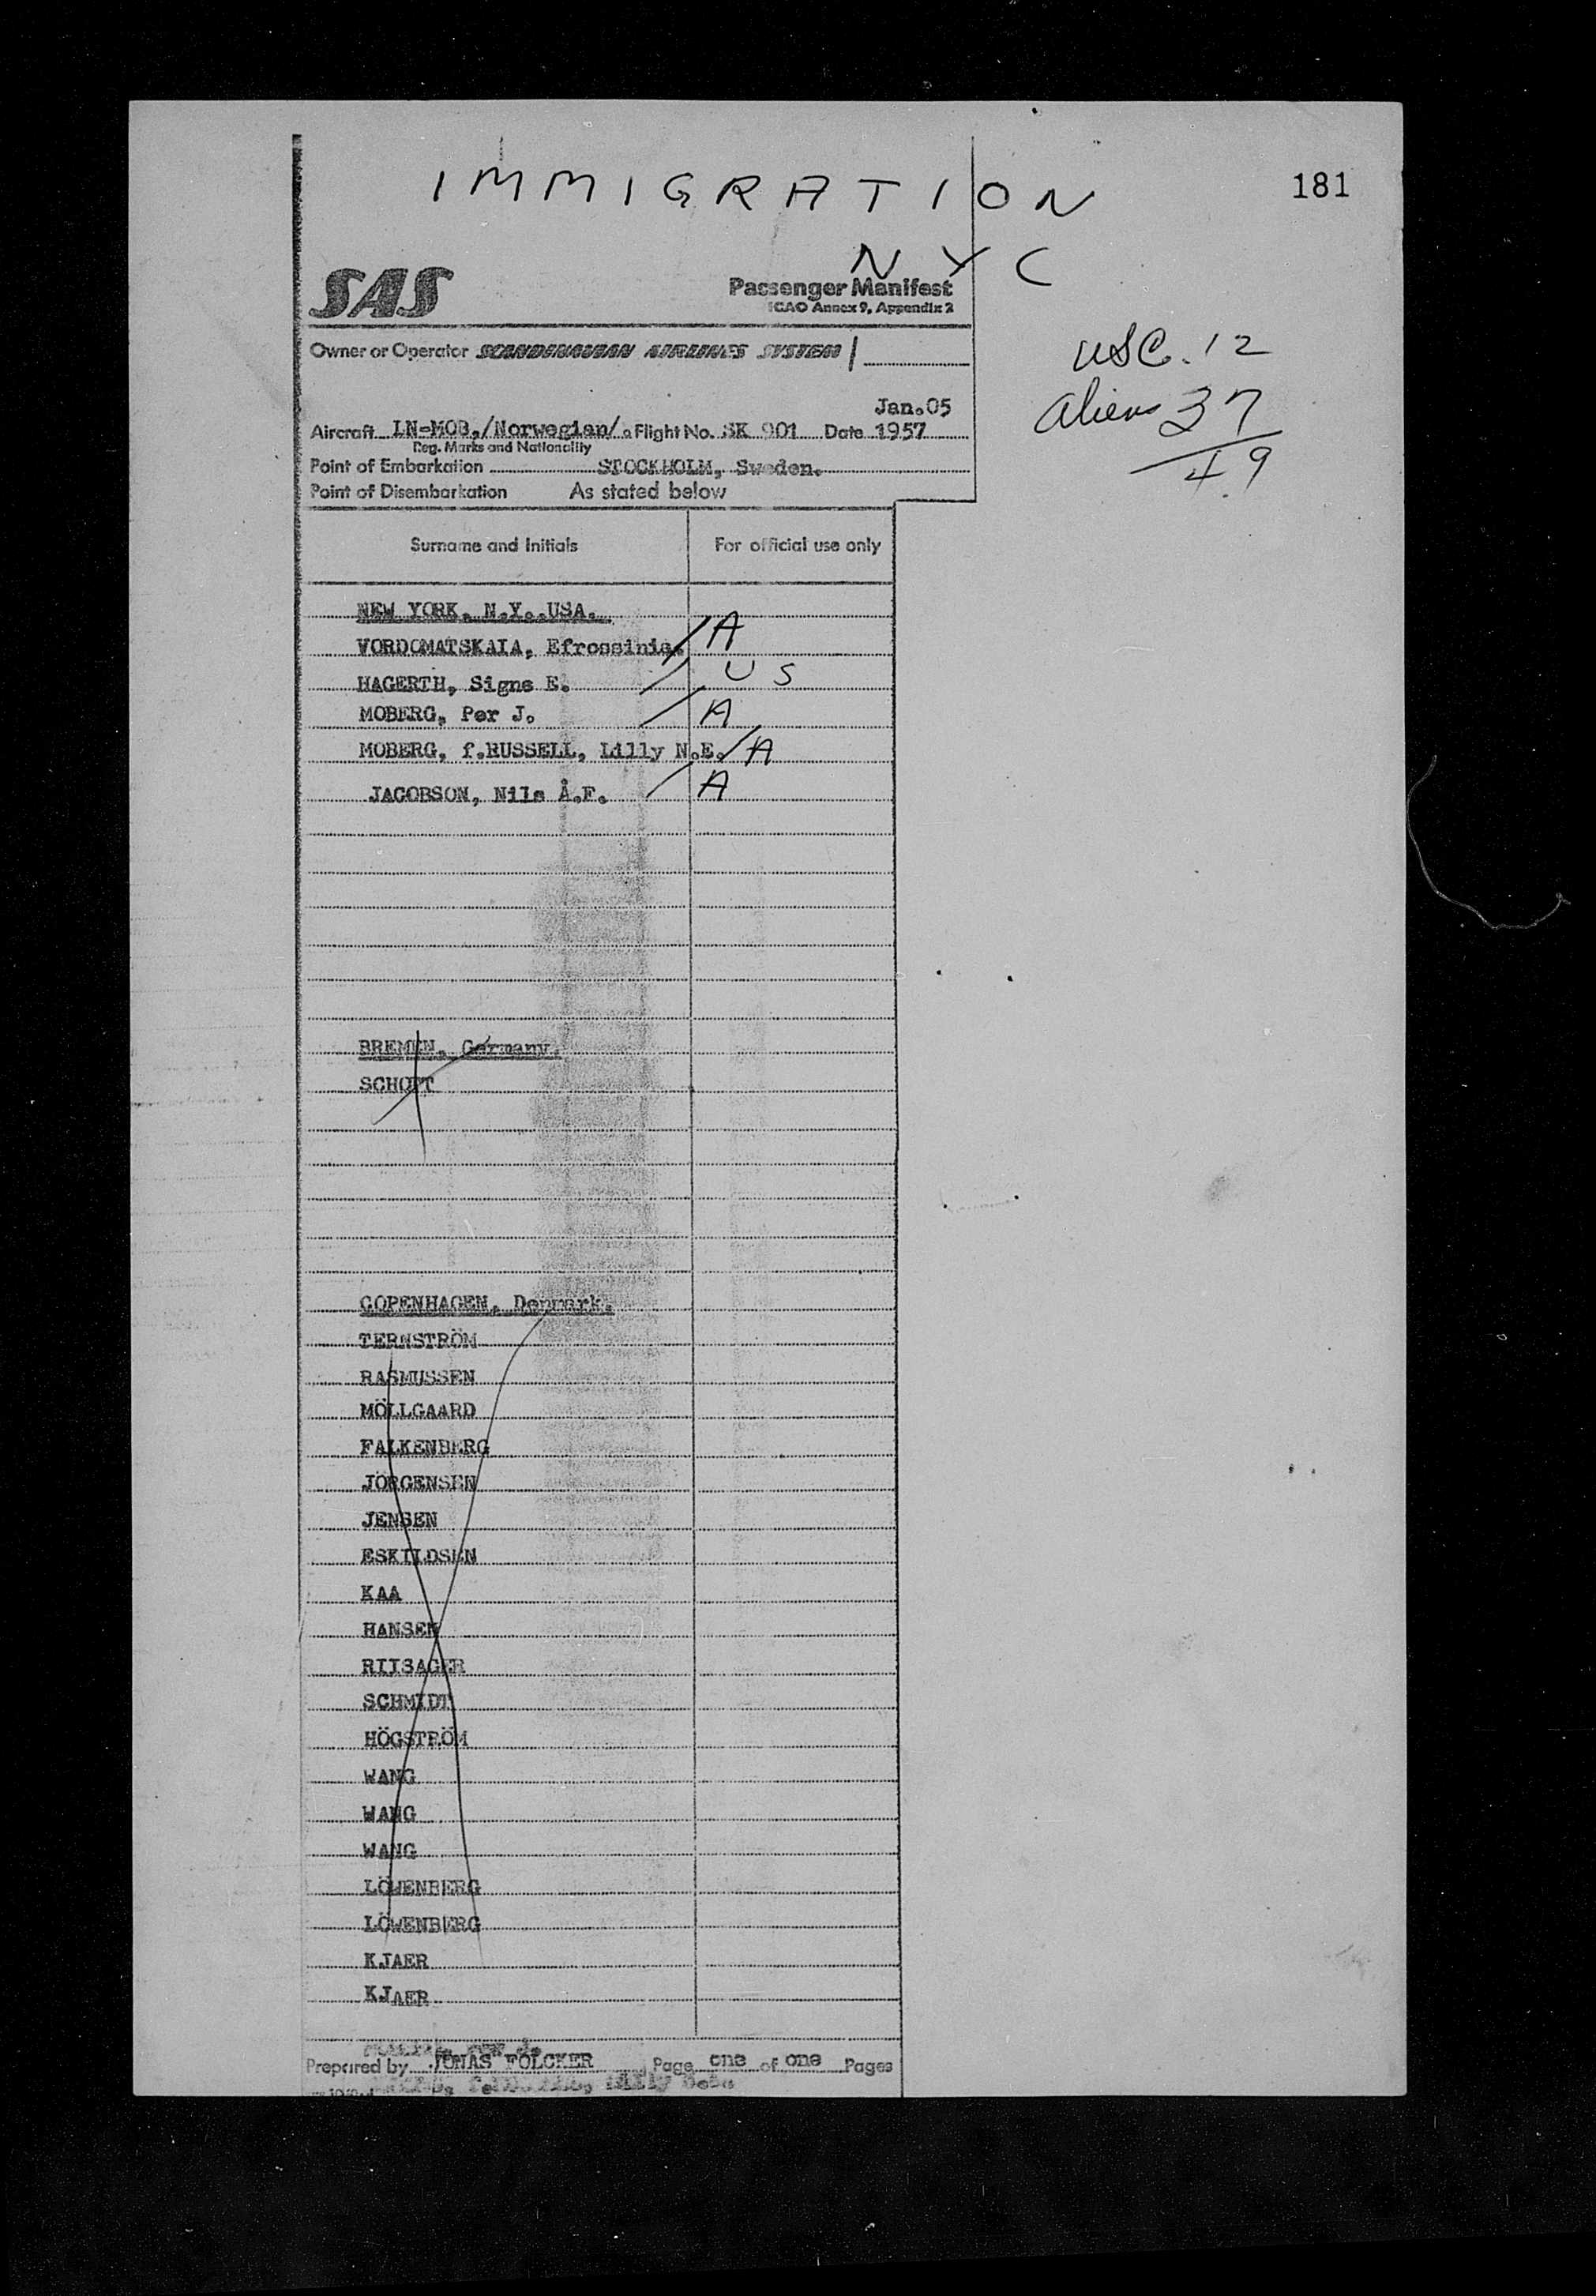 IMMIGRATION
181
NYC
SAS
Passenger Manifest
ICAO Annex 9, Appendix 2
Owner or Operator SCANDINAVIAN AIRLINES SYSTEM
USC. 12
Aliens 37
49
Jan.05
Aircraft LN-MOB./Norwegian/. Flight No. SK 901 Date 1957
Reg. Marks and Nationality
Point of Embarkation STOCKHOLM, Sweden.
Point of Disembarkation As stated below
Surname and Initials For official use only
NEW YORK, N.Y. USA.
VORDOMATSKAIA, Efrossinia. / A
HAGERTH, Signe E. / US
MOBERG, Per J. / A
MOBERG, f.RUSSELL, Lilly N.E. / A
JACOBSON, Nils Å.F. / A
BREMEN, Germany.
SCHOTT
COPENHAGEN, Denmark.
TERNSTRÖM
RASMUSSEN
MÖLLGAARD
FALKENBERG
JÖRGENSEN
JENSEN
ESKILDSEN
KAA
HANSEN
RIISAGER
SCHMIDT
HÖGSTRÖM
WANG
WANG
WANG
LÖWENBERG
LÖWENBERG
KJAER
KJAER
Prepared by JONAS FOLCKER Page one of one Pages